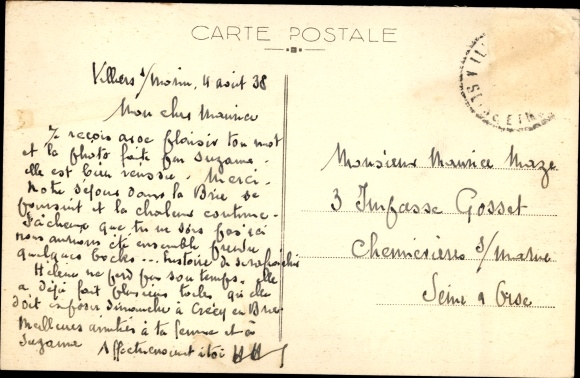 CARTE POSTALE
Villiers s/Morin, 4 août 38
Mon cher Maurice
Je reçois avec plaisir ton mot
et la photo faite par Suzanne.
elle est bien réussie. Merci.
Notre séjour dans la Brie se
poursuit et la chaleur continue.
Fâcheux que tu ne sois pas ici
nous aurions été ensemble prendre
quelques bocks... histoire de se rafraichir
Hélène ne perd pas son temps. Elle
a déjà fait plusieurs toiles qu'elle
doit exposer dimanche à Crécy en Brie
Meilleures amitiés à ta femme et à
Suzanne Affectueusement à toi
Monsieur Maurice Maze
3 Impasse Gosset
Chennevières s/Marne
Seine & Oise